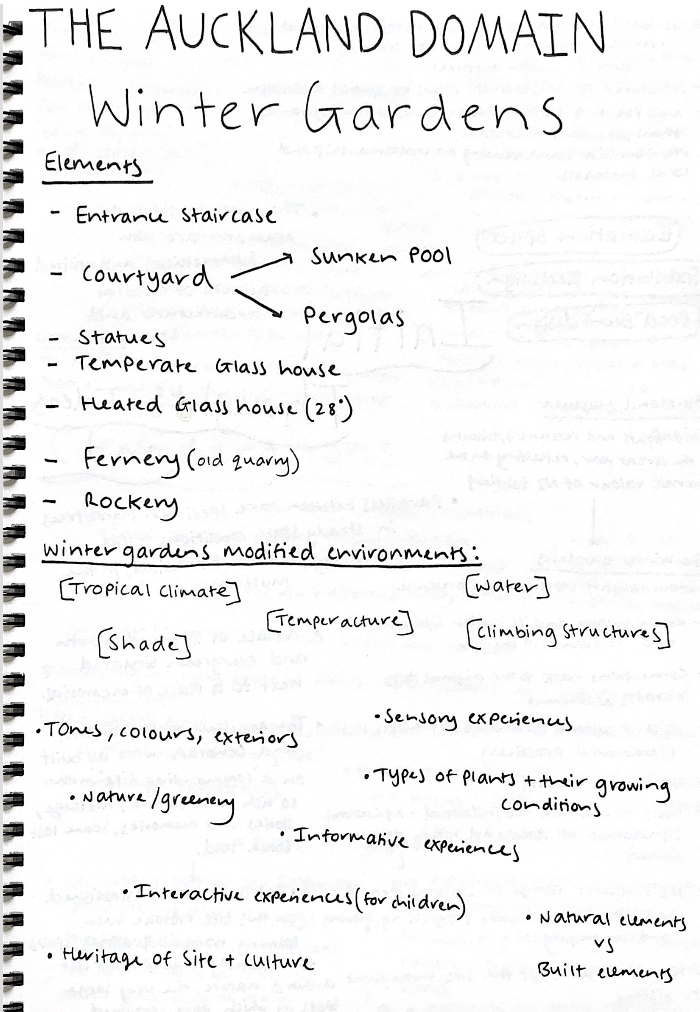 THE AUCKLAND DOMAIN
Winter Gardens
Elements
- Entrance staircase
- Courtyard
Sunken Pool
Pergolas
- Statues
- Temperate Glass house
- Heated Glass house (28°)
- Fernery (old quarry)
- Rockery
Winter gardens modified environments:
[Tropical Climate]
[Water]
[Temperacture]
[Shade]
[Climbing Structures]
• Sensory experiences
• Tones, colours, exteriors
• Types of plants + their growing
conditions
• Nature/greenery
• Informative experiences
• Interactive experiences (for children)
• Natural elements
vs
Built elements
• Heritage of Site + culture